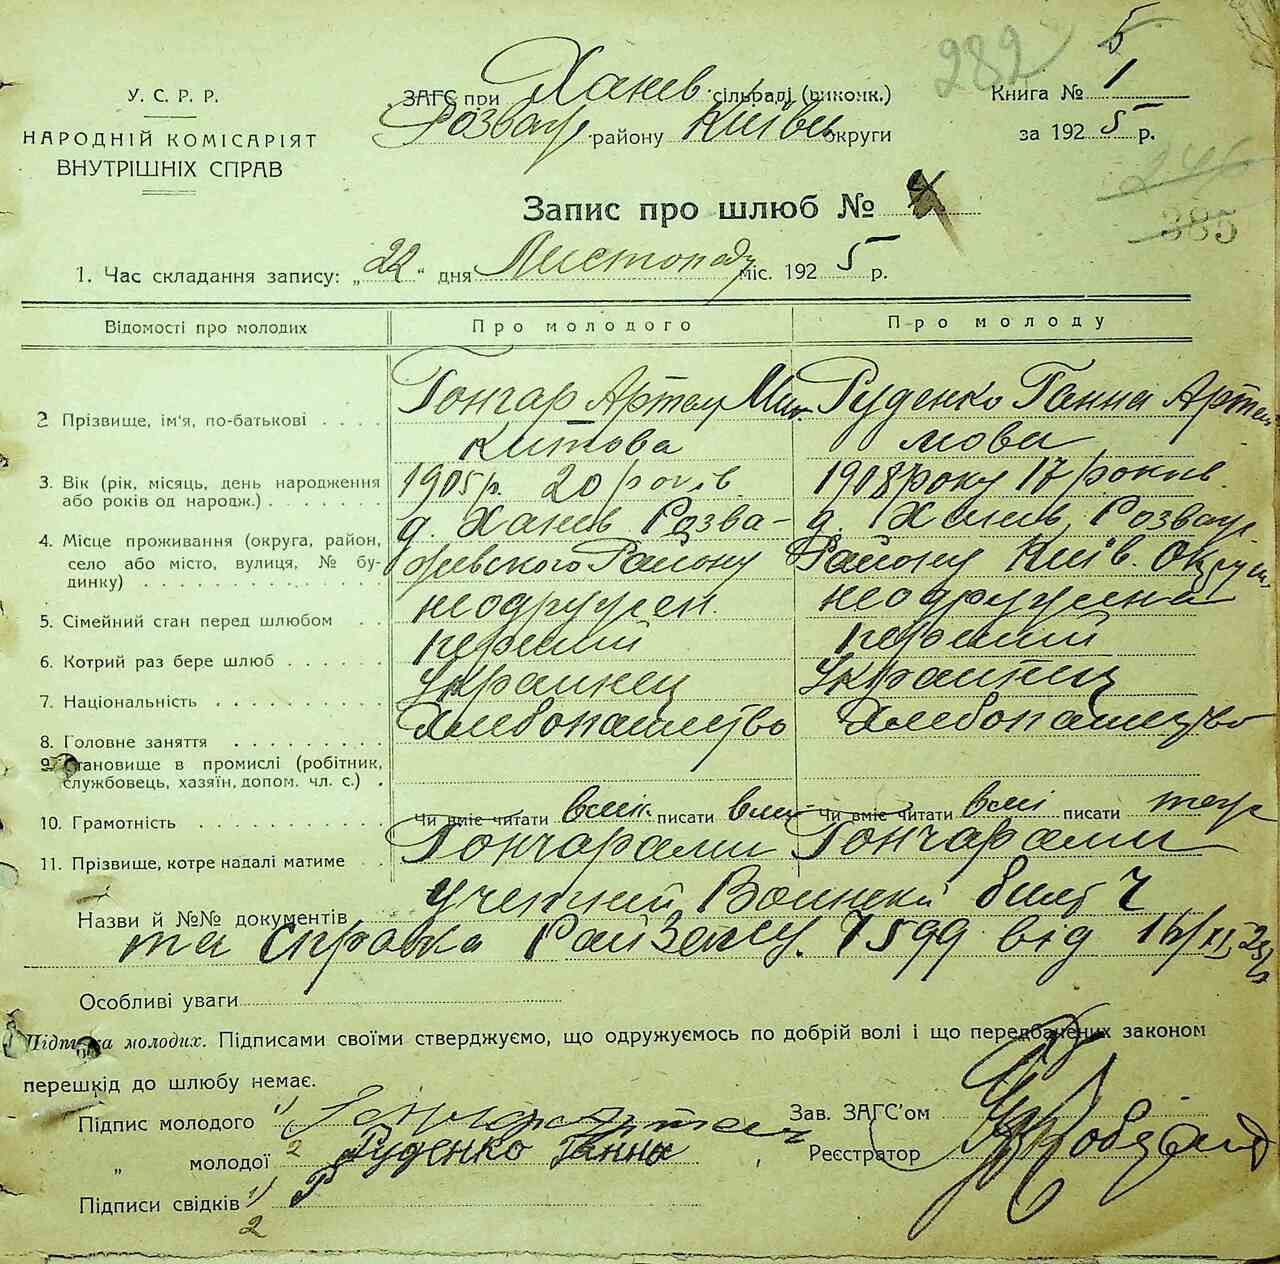 282
5
У. С. Р. Р.
НАРОДНІЙ КОМІСАРІЯТ
ВНУТРІШНІХ СПРАВ
ЗАГС при Ханев сільраді (виконк.)
Розваж району Київськ округи
Книга № 1
за 1925 р.
246
385
Запис про шлюб № 4
1. Час складання запису: „22" дня Листопаду міс. 1925 р.
Відомості про молодих Про молодого Про молоду
2 Прізвище, ім'я, по-батькові Гончар Артем Ми- Руденко Ганна Артем
китова мова
3. Вік (рік, місяць, день народження або років од народж.) 1905 р. 20 років. 1908 року 17 років.
4. Місце проживання (округа, район, село або місто, вулиця, № будинку) д. Ханев Розва- д. Ханев, Розваж.
жевского Району Району Київ. Округи
5. Сімейний стан перед шлюбом неодружен. неодружена
6. Котрий раз бере шлюб перший перший
7. Національність Украинец Украинец
8. Головне заняття Хлебопашество Хлебопашество
9. Становище в промислі (робітник, службовець, хазяїн, допом. чл. с.)
10. Грамотність Чи вміє читати писати Чи вміє читати писати
11. Прізвище, котре надалі матиме Гончарами Гончарами
Назви й №№ документів Воинский билет
та справка РайЗагсу. 7599 від 16/XI 25
Особливі уваги
Підписка молодих. Підписами своїми стверджуємо, що одружуємось по добрій волі і що передбачених законом
перешкід до шлюбу немає.
Підпис молодого 1/ Гончар Артем
„ молодої 2 Руденко Ганна
Підписи свідків 1/
2
Зав. ЗАГС'ом
Реєстратор